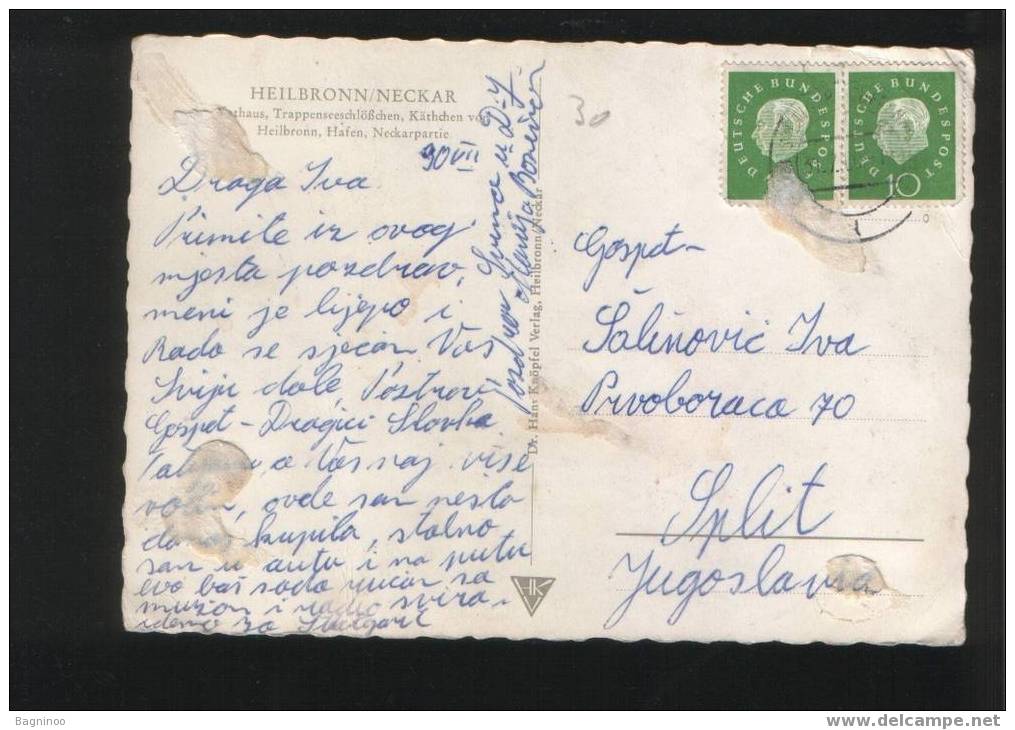 HEILBRONN/NECKAR
Rathaus, Trappenseeschlößchen, Käthchen von
Heilbronn, Hafen, Neckarpartie
30 VII
Draga Iva
Primite iz ovog
mjesta pozdrav,
meni je lijepo i
Rado se sjećam Vas
Sviju dole, Pozdrav
Gospđ- Dragici Slavka
a Vas naj više
volim, ovde sam nešto
kupila, stalno
san u autu i na putu
evo baš sada ručan sa
mužon i radio svira
idemo za Stuttgart
Pozdrav
Dr. Hans Knöpfel Verlag, Heilbronn/Neckar
HK
30
DEUTSCHE BUNDESPOST
DEUTSCHE BUNDESPOST
10
Gospđ-
Šalinović Iva
Prvoboraca 70
Split
Jugoslavia
Bagninoo
www.delcampe.net